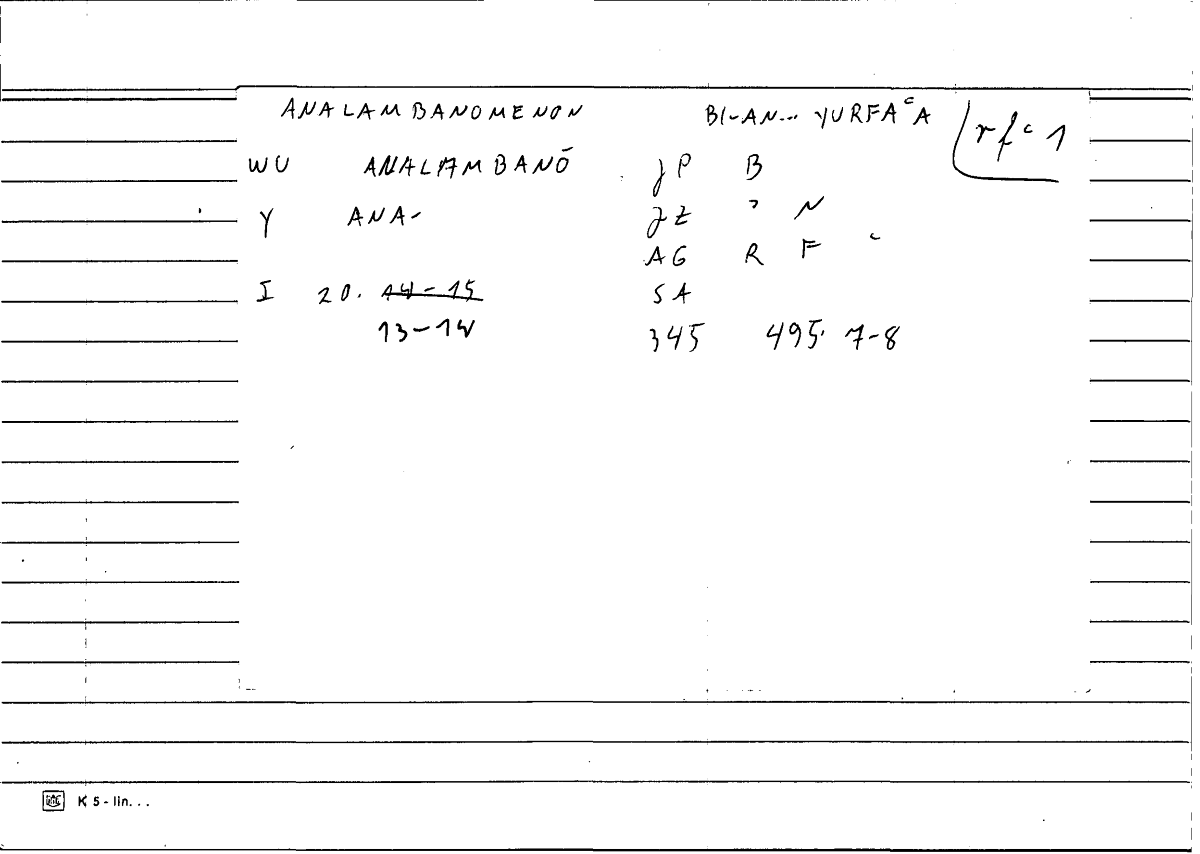 ANALAMBANOMENON BI-AN... YURFAᶜA rfᶜ1
WU ANALAMBANŌ JP B
Y ANA- JZ ʾ N
AG R F ᶜ
I 20. 14-15 SA
13-14 345 495. 7-8
K 5 - lin. . .